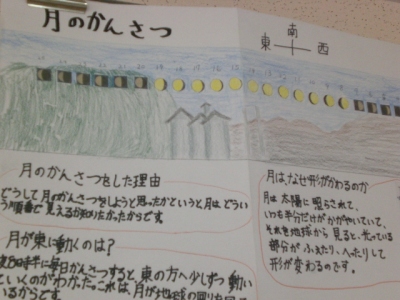 月のかんさつ
南
東 西
月のかんさつをした理由
どうして月のかんさつをしようと思ったかというと月は、どうい
う順番で見えるか知りたかったからです。
月が東に動くのは?
毎日かんさつすると、東の方へ少しずつ動い
ていくのがわかった。これは、月が地球の周りを回
いるからです。
月は、なぜ形がかわるのか
月は太陽に照らされて、
いつも半分だけがかがやいていて、
それを地球から見ると、光っている
部分が、ふえたり、へったりして
形が変わるのです。